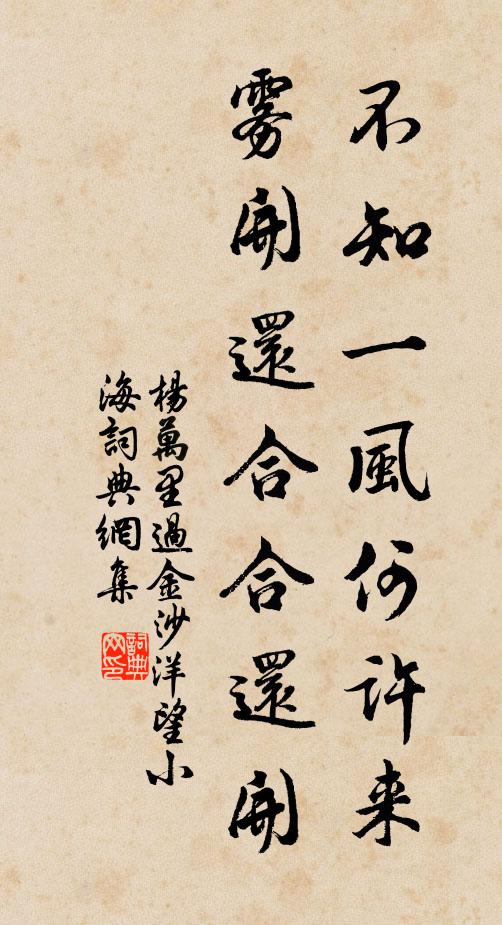 不知一風何許来
雾開還合合還開
楊萬里過金沙洋望小
海詞典網集
詞典網印